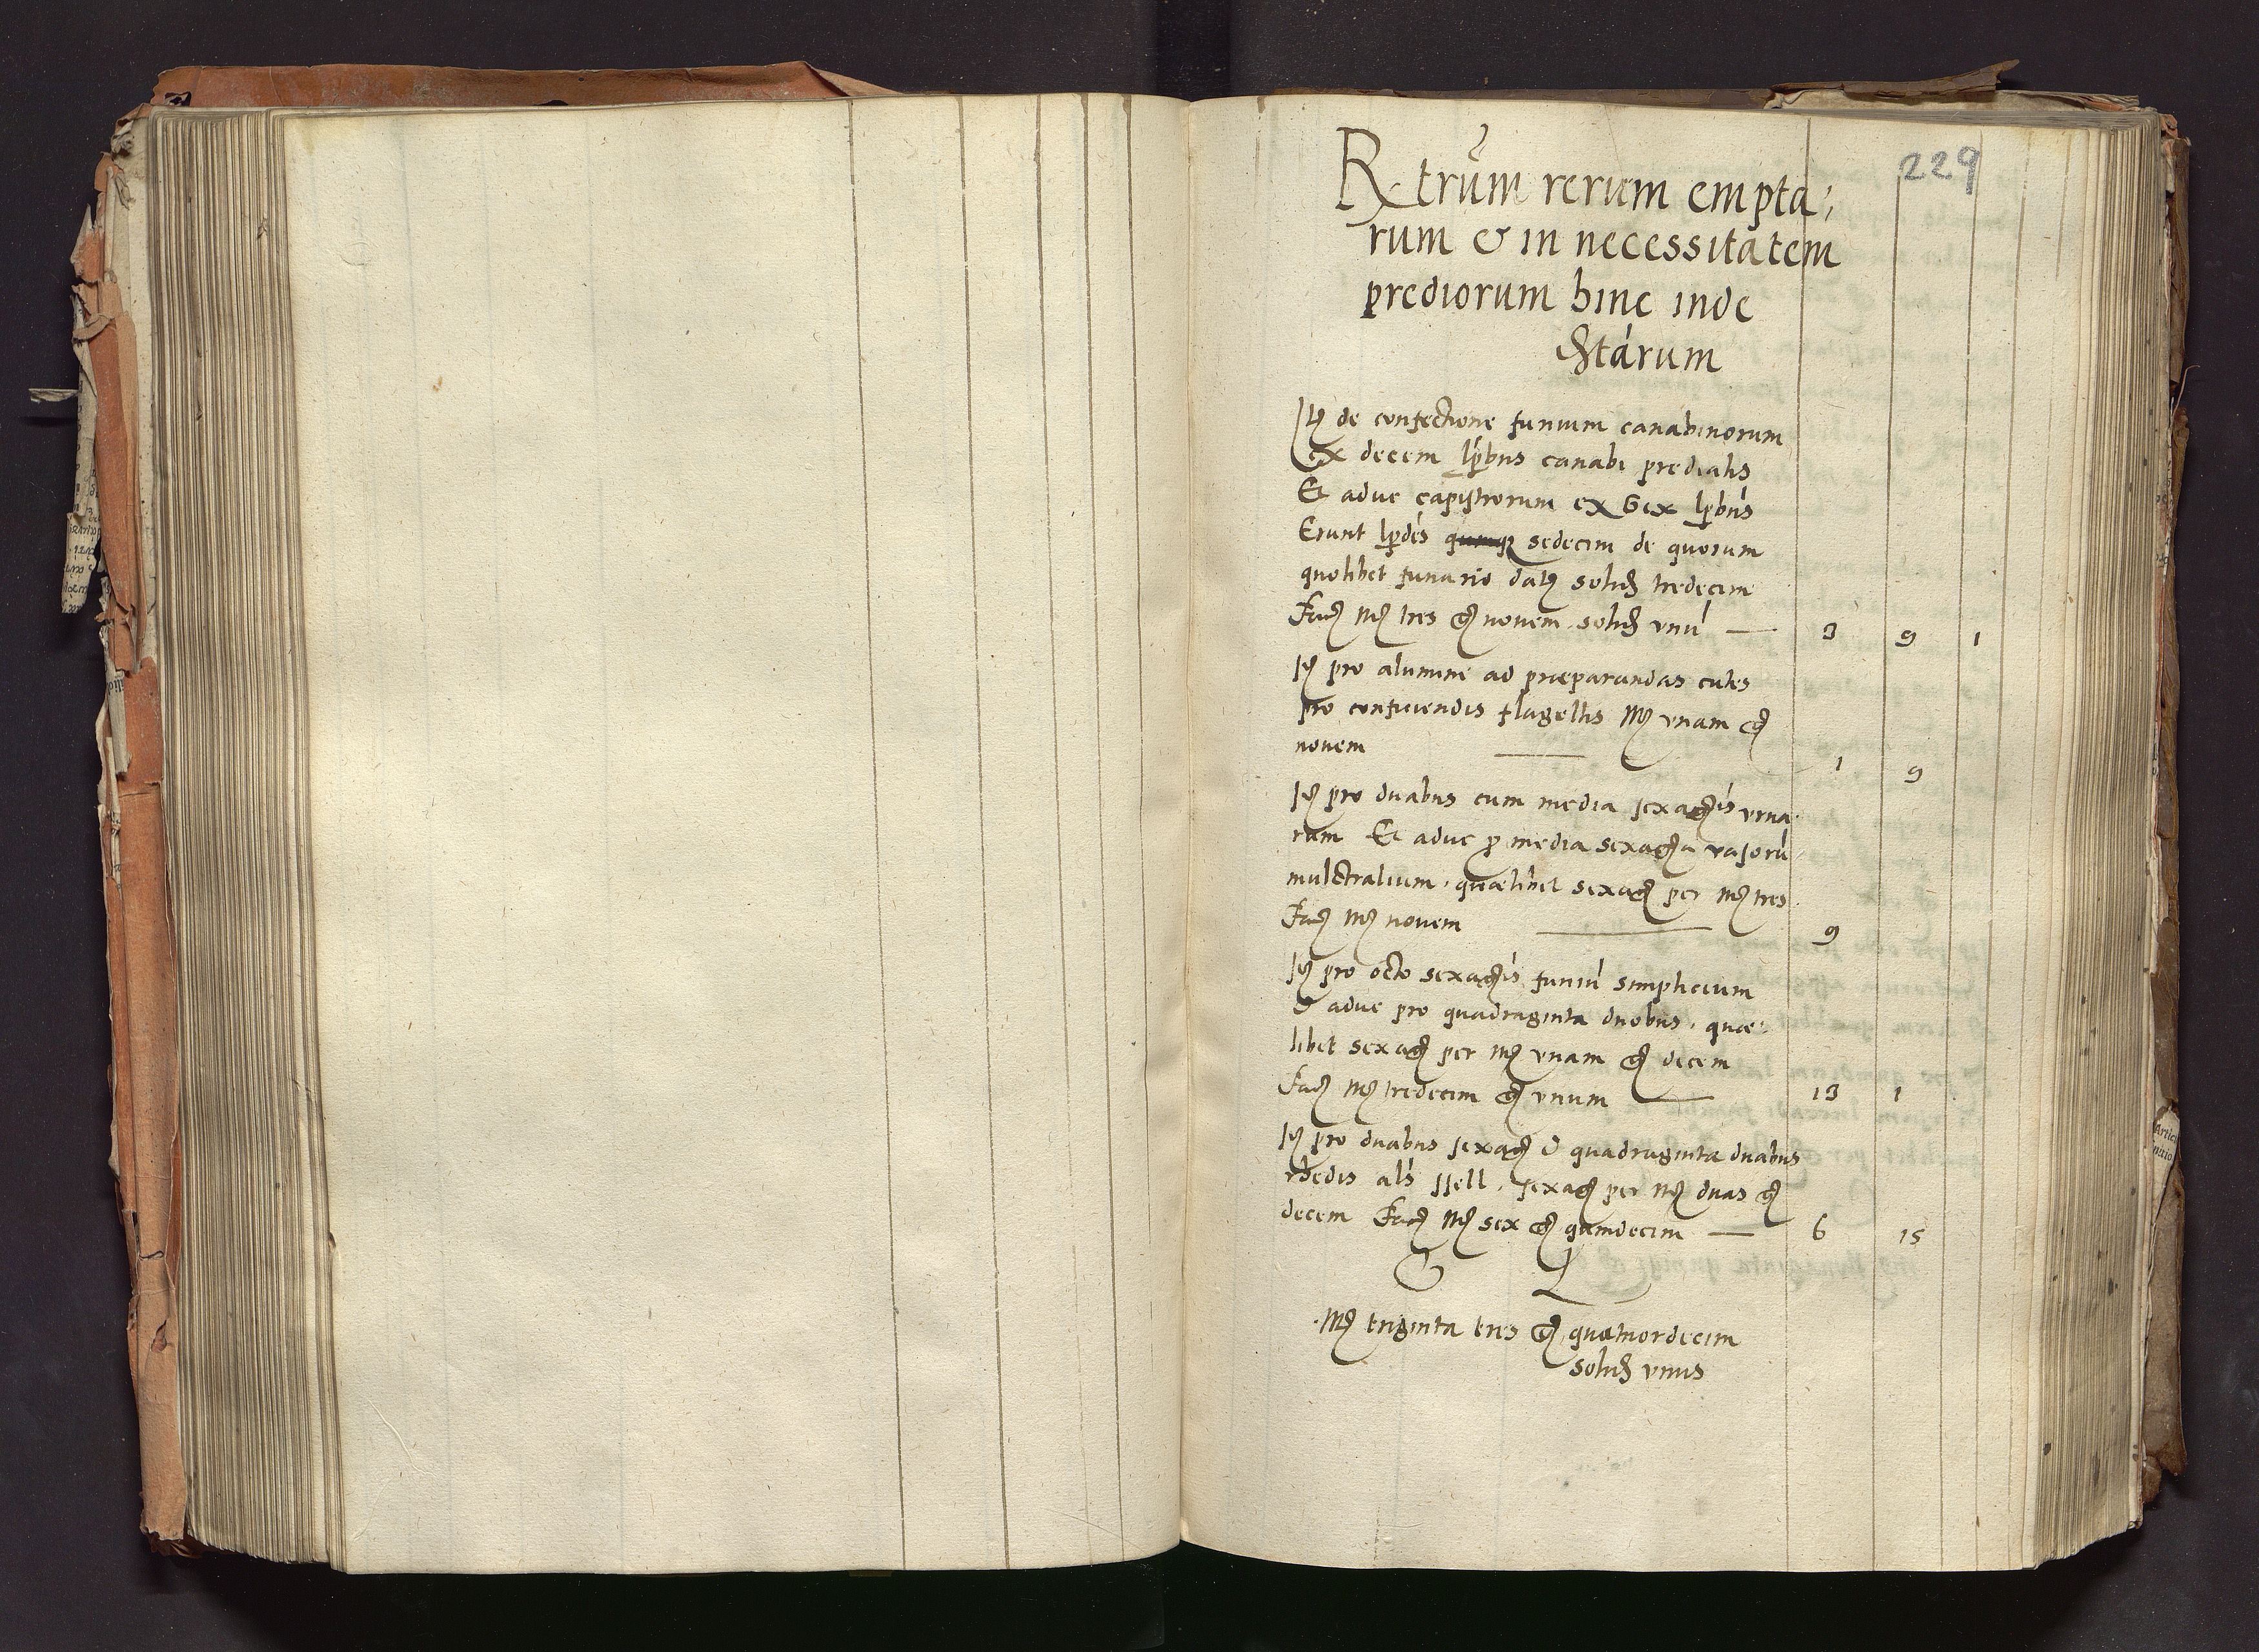 229
Rxtrum rerum empta:
rum & in necessitatem
prediorum hinc inde
exstarum
Itz de confectione funium canabinorum
Ex decem lpbus canabi predialis
Et aduc capistrorum ex sex lpbus
Erunt lpdes quinqz sedecim de quorum
quolibet funario datz solid tredecim
Facz mrz tres gz nouem solid vnu — 3 9 1
Itz pro alumine ad praeparandas cutes
pro conficiendis flagellis Mrz vnam gz
nouem — 1 9
Itz pro duabus cum media sexagis vrna
rum Et aduc p media sexagna vasoru
mulctralium, quaelibet sexagz per mrz tres
Facz mrz nouem — 9
Itz pro octo sexagis funiu simplicium
& aduc pro quadraginta duobus, quae:
libet sexagz per mrz vnam gz decem
Facz mrz tredecim gz vnum — 13 1
Itz pro duabus sexagz & quadraginta duabus
rhedis als ssell, sexagz per mrz duas gz
decem Facz mrz sex gz quindecim — 6 15
Mrz triginta tres gz quatuordecim
solid vnus